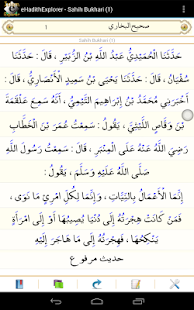 eHadithExplorer - Sahih Bukhari (1)
صحيح البخاري ١
حَدَّثَنَا الْحُمَيْدِيُّ عَبْدُ اللَّهِ بْنُ الزُّبَيْرِ ، قَالَ : حَدَّثَنَا
سُفْيَانُ ، قَالَ : حَدَّثَنَا يَحْيَى بْنُ سَعِيدٍ الْأَنْصَارِيُّ ، قَالَ :
أَخْبَرَنِي مُحَمَّدُ بْنُ إِبْرَاهِيمَ التَّيْمِيُّ ، أَنَّهُ سَمِعَ عَلْقَمَةَ
بْنَ وَقَّاصٍ اللَّيْثِيَّ ، يَقُولُ : سَمِعْتُ عُمَرَ بْنَ الْخَطَّابِ
رَضِيَ اللَّهُ عَنْهُ عَلَى الْمِنْبَرِ ، قَالَ : سَمِعْتُ رَسُولَ اللَّهِ
صَلَّى اللَّهُ عَلَيْهِ وَسَلَّمَ ، يَقُولُ :
إِنَّمَا الْأَعْمَالُ بِالنِّيَّاتِ ، وَإِنَّمَا لِكُلِّ امْرِئٍ مَا نَوَى ،
فَمَنْ كَانَتْ هِجْرَتُهُ إِلَى دُنْيَا يُصِيبُهَا أَوْ إِلَى امْرَأَةٍ
يَنْكِحُهَا ، فَهِجْرَتُهُ إِلَى مَا هَاجَرَ إِلَيْهِ
حديث مرفوع